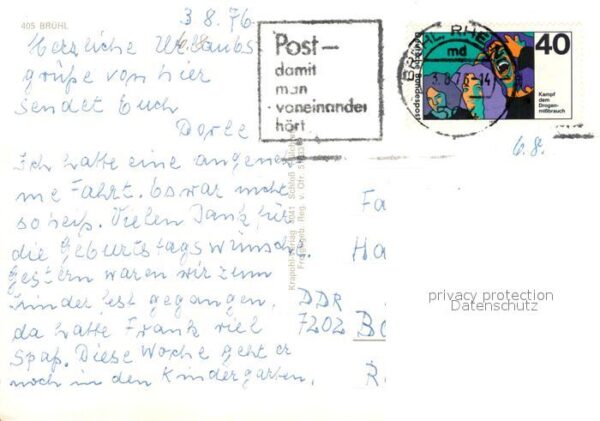 405 BRÜHL
3.8.76
Herzliche Urlaubs
grüße von hier
sendet Euch
Dorle
Ich hatte eine angeneh
me Fahrt. Es war nicht
so heiß. Vielen Dank für
die Geburtstagswünsche.
Gestern waren wir zum
Kinderfest gegangen,
da hatte Frank viel
Spaß. Diese Woche geht er
noch in den Kindergarten.
Post –
damit
man
voneinander
hört
BRÜHL, RHEINL
md
3.8.76-14
Deutsche Bundespost
40
Kampf
dem
Drogen-
mißbrauch
6.8.
6.8.
Krapohl-Verlag 4041 Schloß
Freigegeb. Reg. v. Obf.
Fa
Ha
DDR
7202 Bö
R
privacy protection
Datenschutz